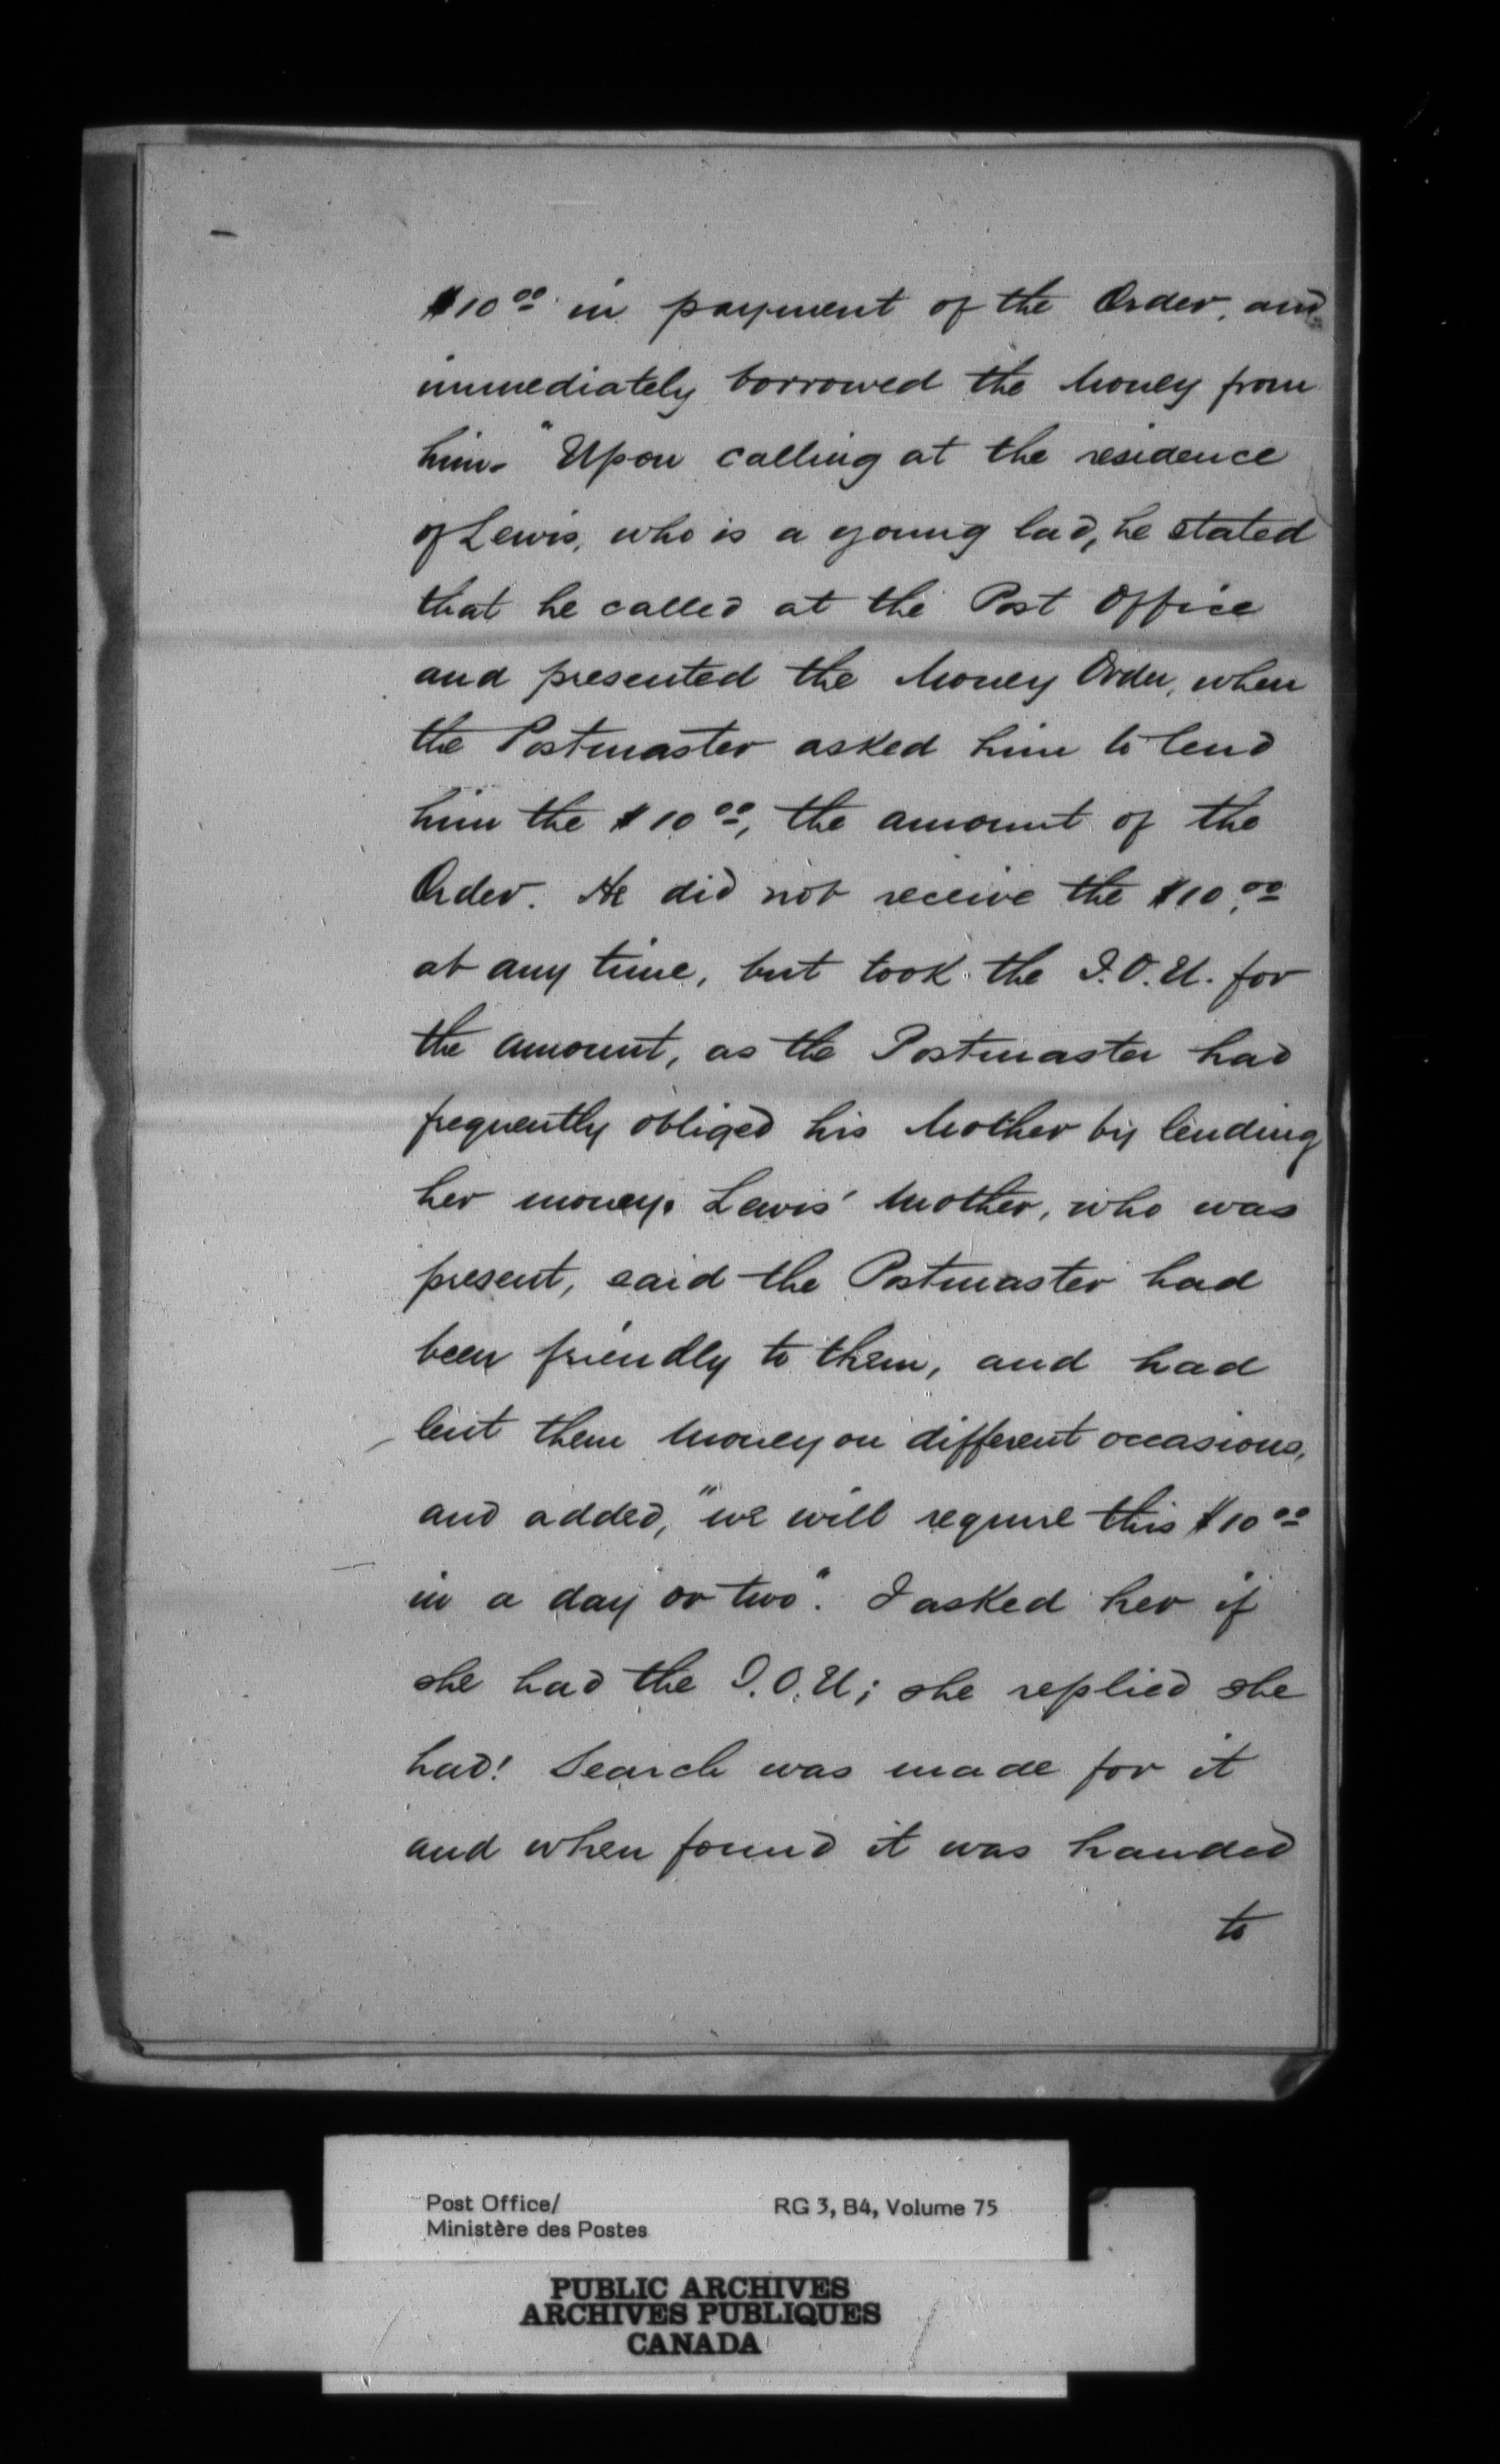 $10.00 in payment of the Order, and
immediately borrowed the Money from
him." Upon calling at the residence
of Lewis, who is a young lad, he stated
that he called at the Post Office
and presented the Money Order, when
the Postmaster asked him to lend
him the $10.00, the amount of the
Order. He did not receive the $10.00
at any time, but took the I.O.U. for
the amount, as the Postmaster had
frequently obliged his Mother by lending
her money. Lewis' Mother, who was
present, said the Postmaster had
been friendly to them, and had
lent them Money on different occasions,
and added, "we will require this $10.00
in a day or two". I asked her if
she had the I.O.U; she replied she
had! Search was made for it
and when found it was handed
to
Post Office/
Ministère des Postes
RG 3, B4, Volume 75
PUBLIC ARCHIVES
ARCHIVES PUBLIQUES
CANADA